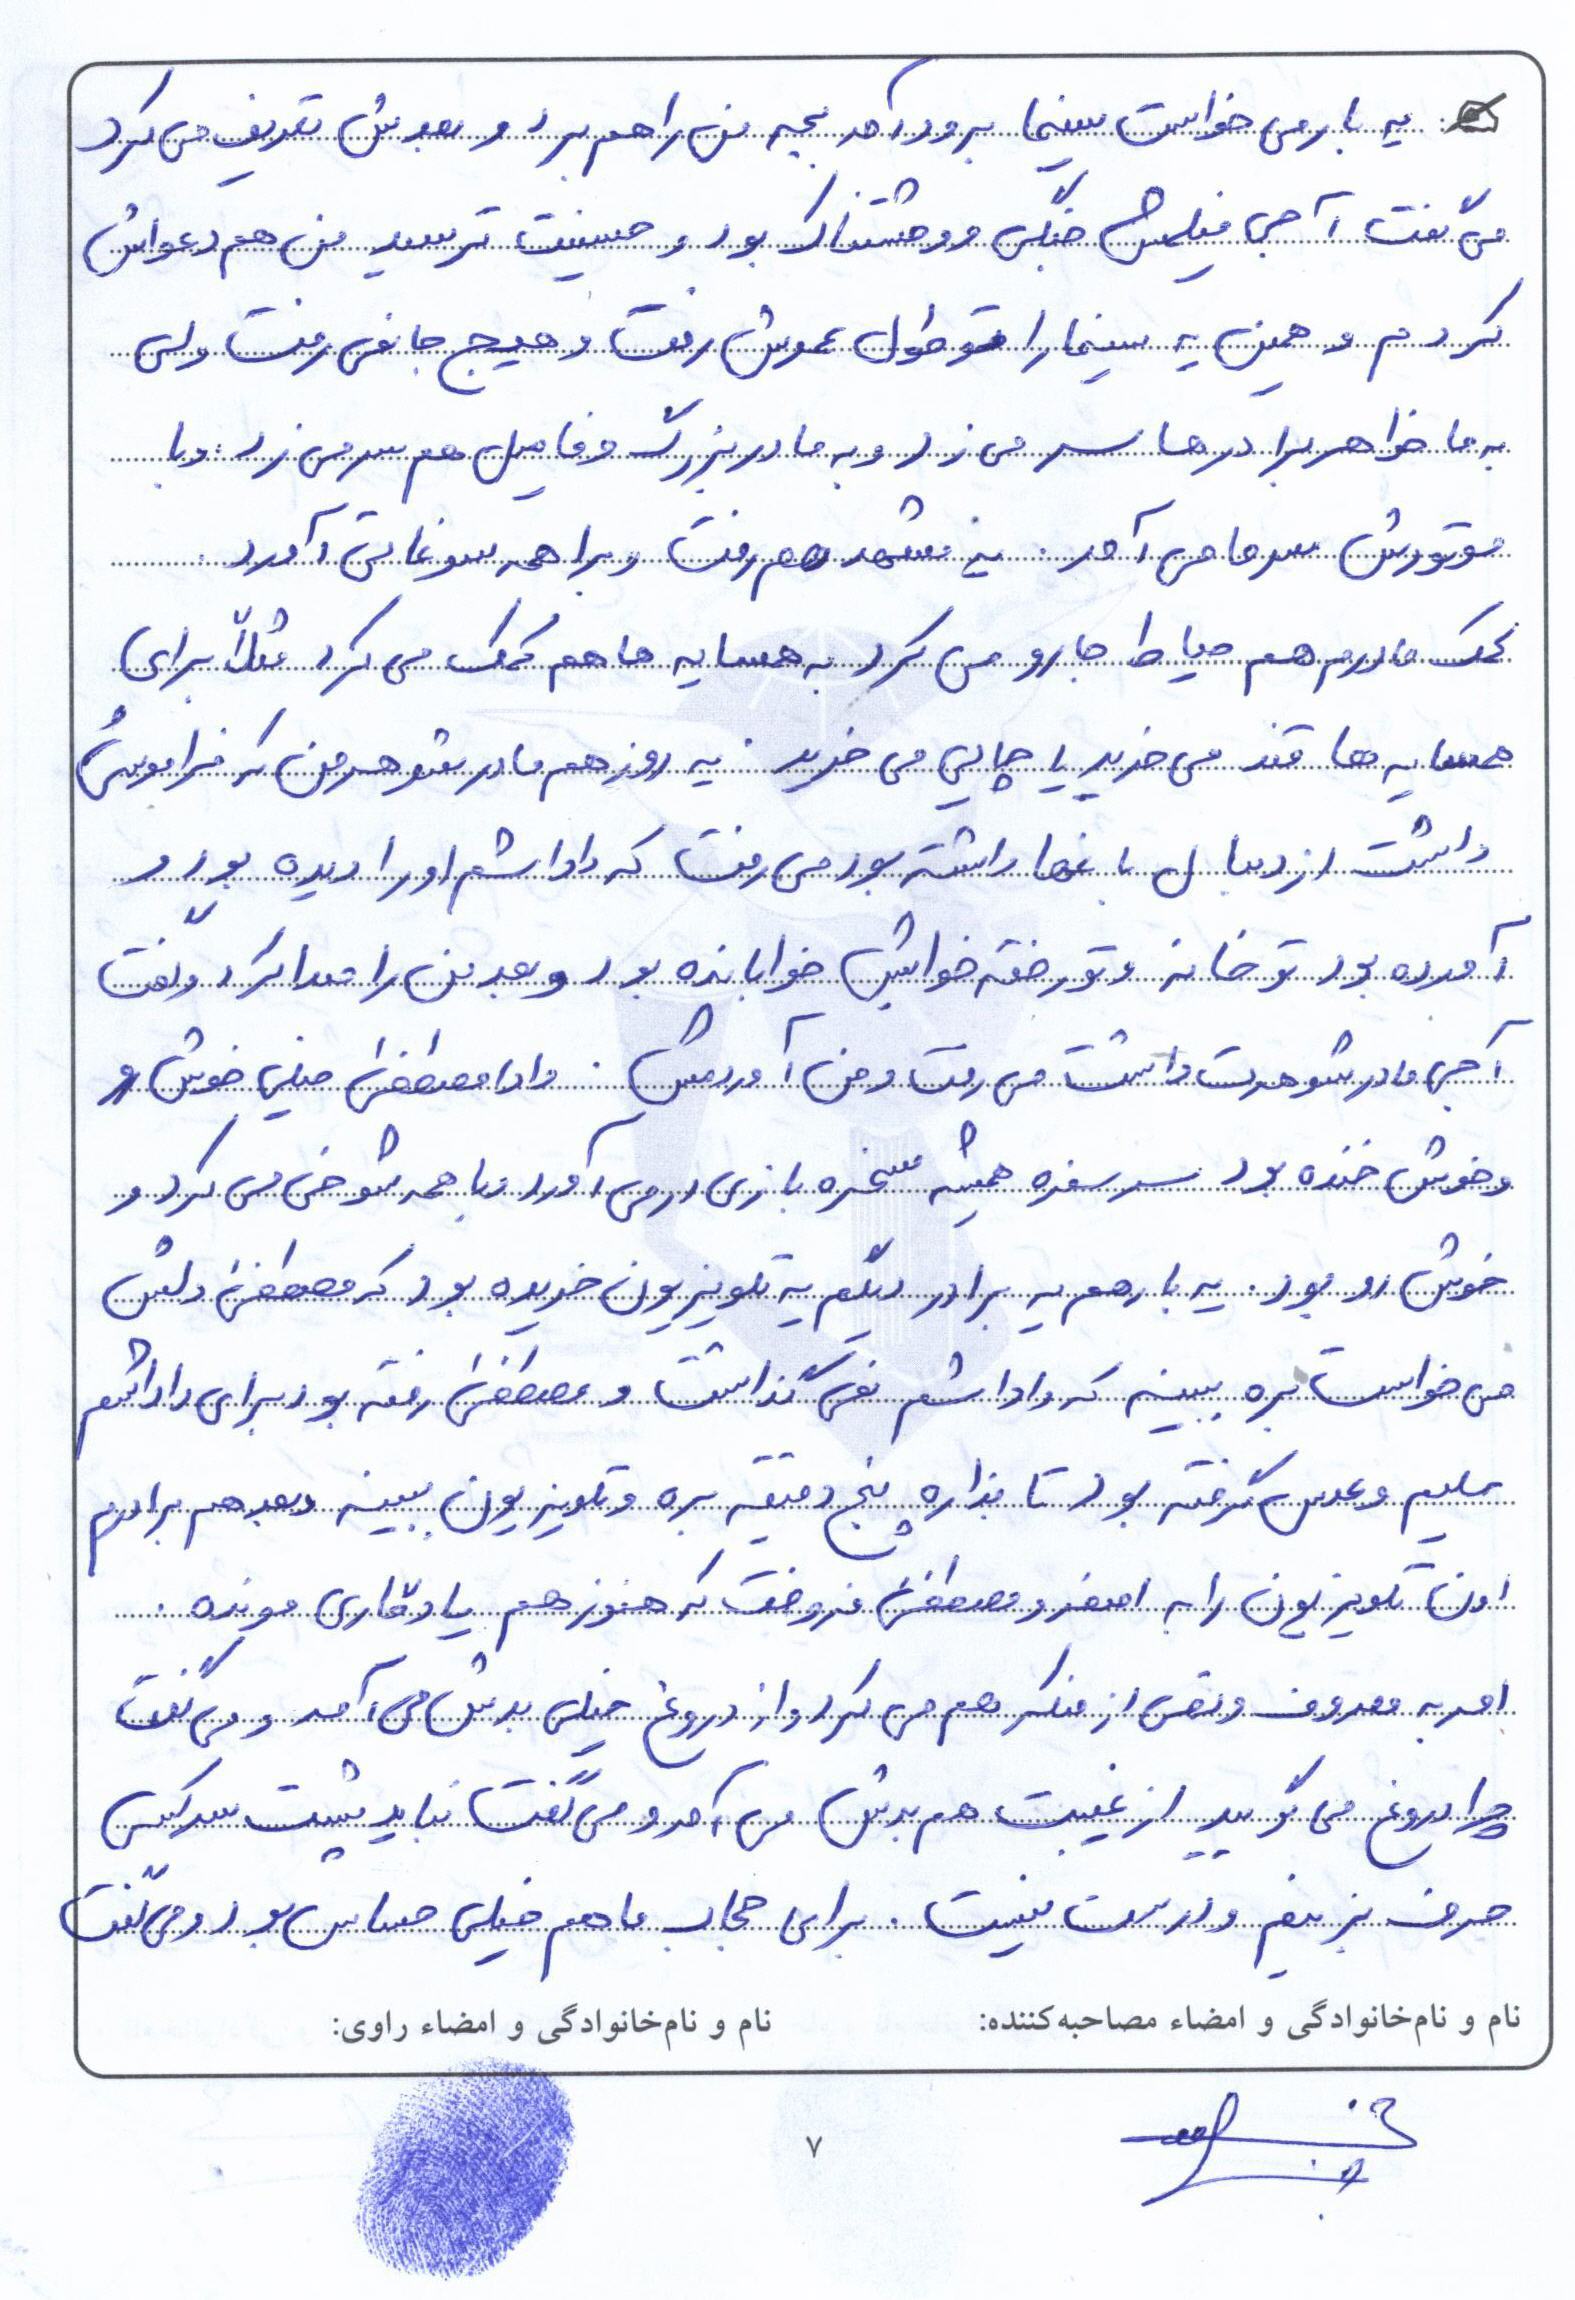 یه بار می خواست سینما برود آمد بچه من را هم برد و بعدش تعریف می کرد
می گفت آجی فیلمش جنگی و وحشتناک بود و حسینت ترسید من هم دعواش
کردم و همین یه سینما را تو طول عمرش رفت و هیچ جا نمی رفت ولی
به ما خواهر برادرها سر می زد و به مادربزرگ و فامیل هم سر می زد و با
موتورش سر ما می آمد. یه مشهد هم رفت و برا همه سوغاتی آورد.
کمک مادرم هم حیاط جارو می کرد به همسایه ها هم کمک می کرد مثلاً برای
همسایه ها قند می خرید یا چایی می خرید. یه روز هم مادر شوهر من که فراموشُ
داشت از دنبال باغها راشته بود می رفت که داداشم او را دیده بود و
آورده بود تو خانه و تو رختخوابش خوابانده بود و بعد من را صدا کرد و گفت
آجی مادر شوهرت داشت می رفت و من آوردمش. دادا مصطفی خیلی خوش رو
و خوش خنده بود سر سفره همیشه مسخره بازی در می آورد و با همه شوخی می کرد و
خوش رو بود. یه بار هم یه برادر دیگم یه تلویزیون خریده بود که مصطفی دلش
می خواست بره ببینه که داداشم نمی گذاشت و مصطفی رفته بود برای داداشم
سلیم و عدس گرفته بود تا بذاره پنج دقیقه بره و تلویزیون ببینه و بعد هم برادرم
اون تلویزیون را به اصغر و مصطفی فروخت که هنوز هم یادگاری مونده.
امر به معروف و نهی از منکر هم می کرد و از دروغ خیلی بدش می آمد و می گفت
چرا دروغ می گویید از غیبت هم بدش می آمد و می گفت نباید پشت سر کسی
حرف بزنیم و درست نیست. برای حجاب ما هم خیلی حساس بود و می گفت
نام و نام‌خانوادگی و امضاء مصاحبه‌کننده: نام و نام‌خانوادگی و امضاء راوی:
۷